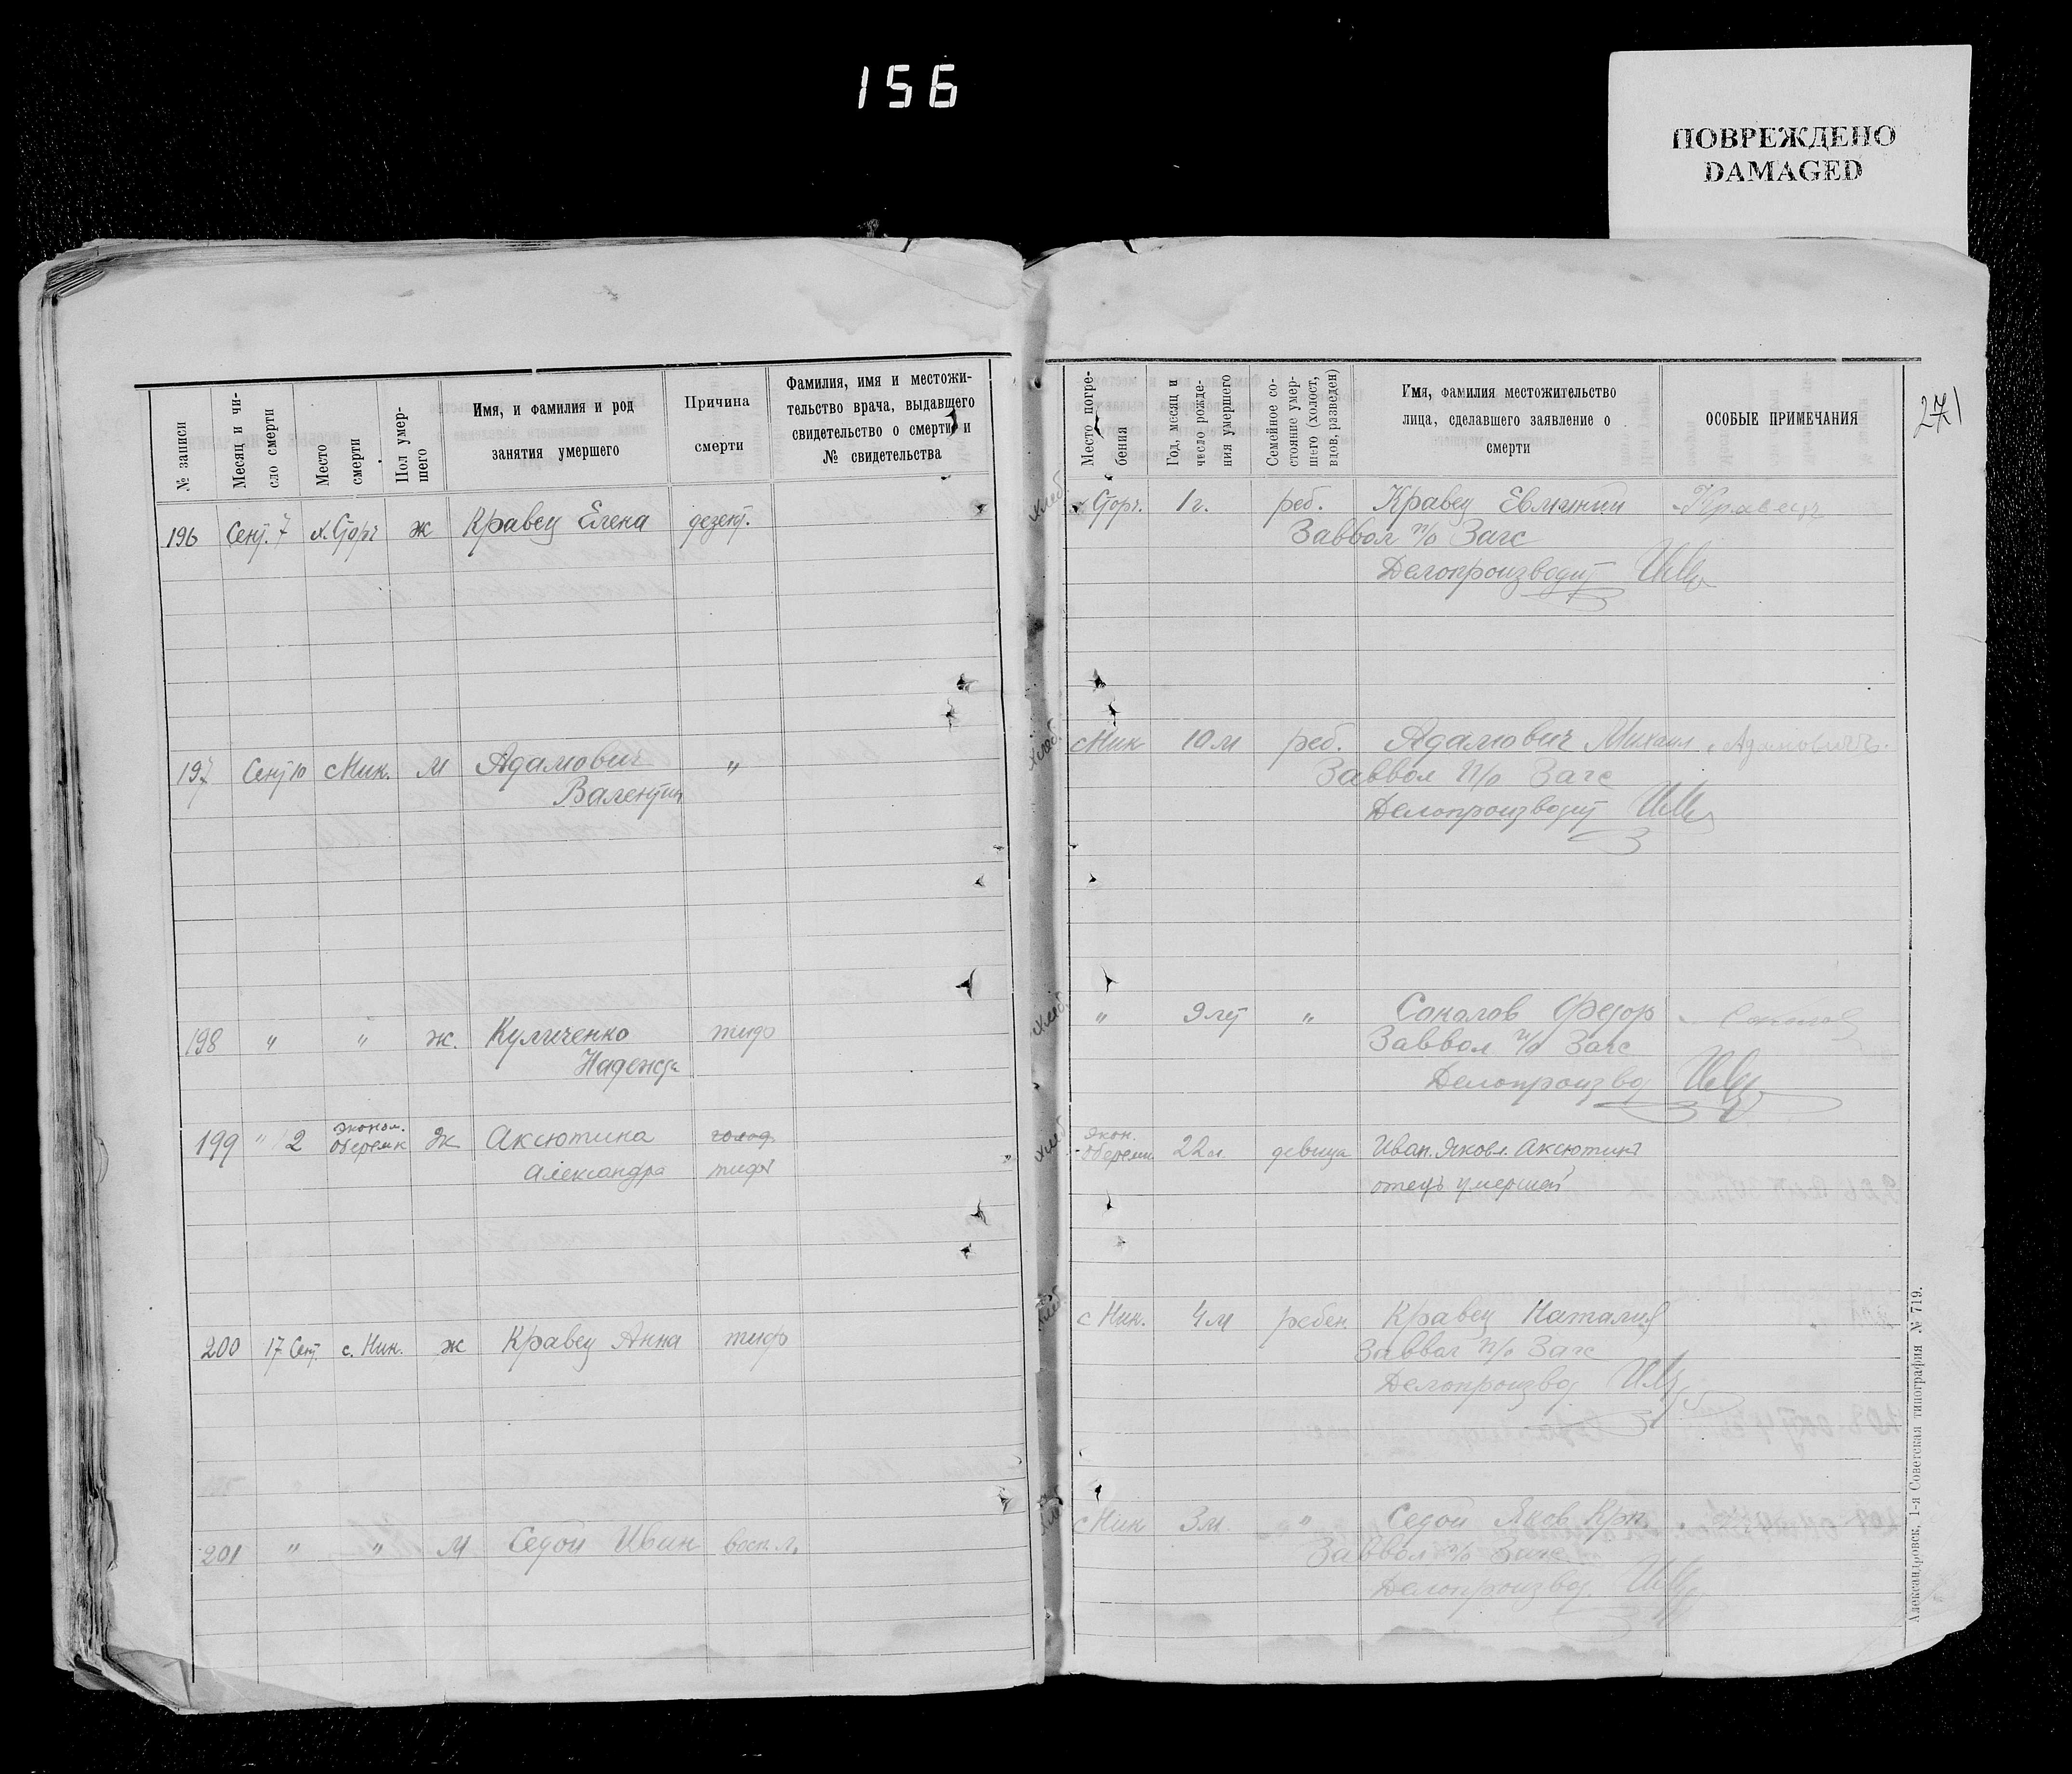 156
ПОВРЕЖДЕНО
DAMAGED
271
№ записи
Месяц и чи-
сло смерти
Место
смерти
Пол умер-
шего
Имя, и фамилия и род
занятия умершего
Причина
смерти
Фамилия, имя и местожи-
тельство врача, выдавшего
свидетельство о смерти и
№ свидетельства
Место погре-
бения
Год, месяц и
число рожде-
ния умершего
Семейное со-
стояние умер-
шего (холост,
вдов, разведен)
Имя, фамилия местожительство
лица, сделавшего заявление о
смерти
ОСОБЫЕ ПРИМЕЧАНИЯ
196 Сент. 7 х. Сторч ж Кравец Елена дезент.
хлеб. х Сторч. 1 г. реб. Кравец Евгений Кравец
Заввол п/о Загс
Делопроизводит
197 Сент 10 с Ник. М Адамович "
Валентин
хлеб. с Ник 10 м реб. Адамович Михаил Адамович
Заввол п/о Загс
Делопроизводит
198 " " ж. Куличенко тиф
Надежда
хлеб. " 9 лет " Сокалов Федор
Заввол п/о Загс
Делопроизвод
199 " 2 эконом. Оберемк Ж Аксютина голод
Александра тиф
хлеб экон. Оберемк. 22 л. девица Иван. Яковл. Аксютин
отец умершей
200 17 Сент. с. Ник. ж Кравец Анна тиф
хлеб с Ник. 4 м ребен Кравец Наталия
Заввол п/о Загс
Делопроизвод
201 " " М Седой Иван восп. л.
хлеб с Ник 3 м. " Седой Яков
Заввол п/о Загс
Делопроизвод.
Александровск, 1-я Советская типография № 719.